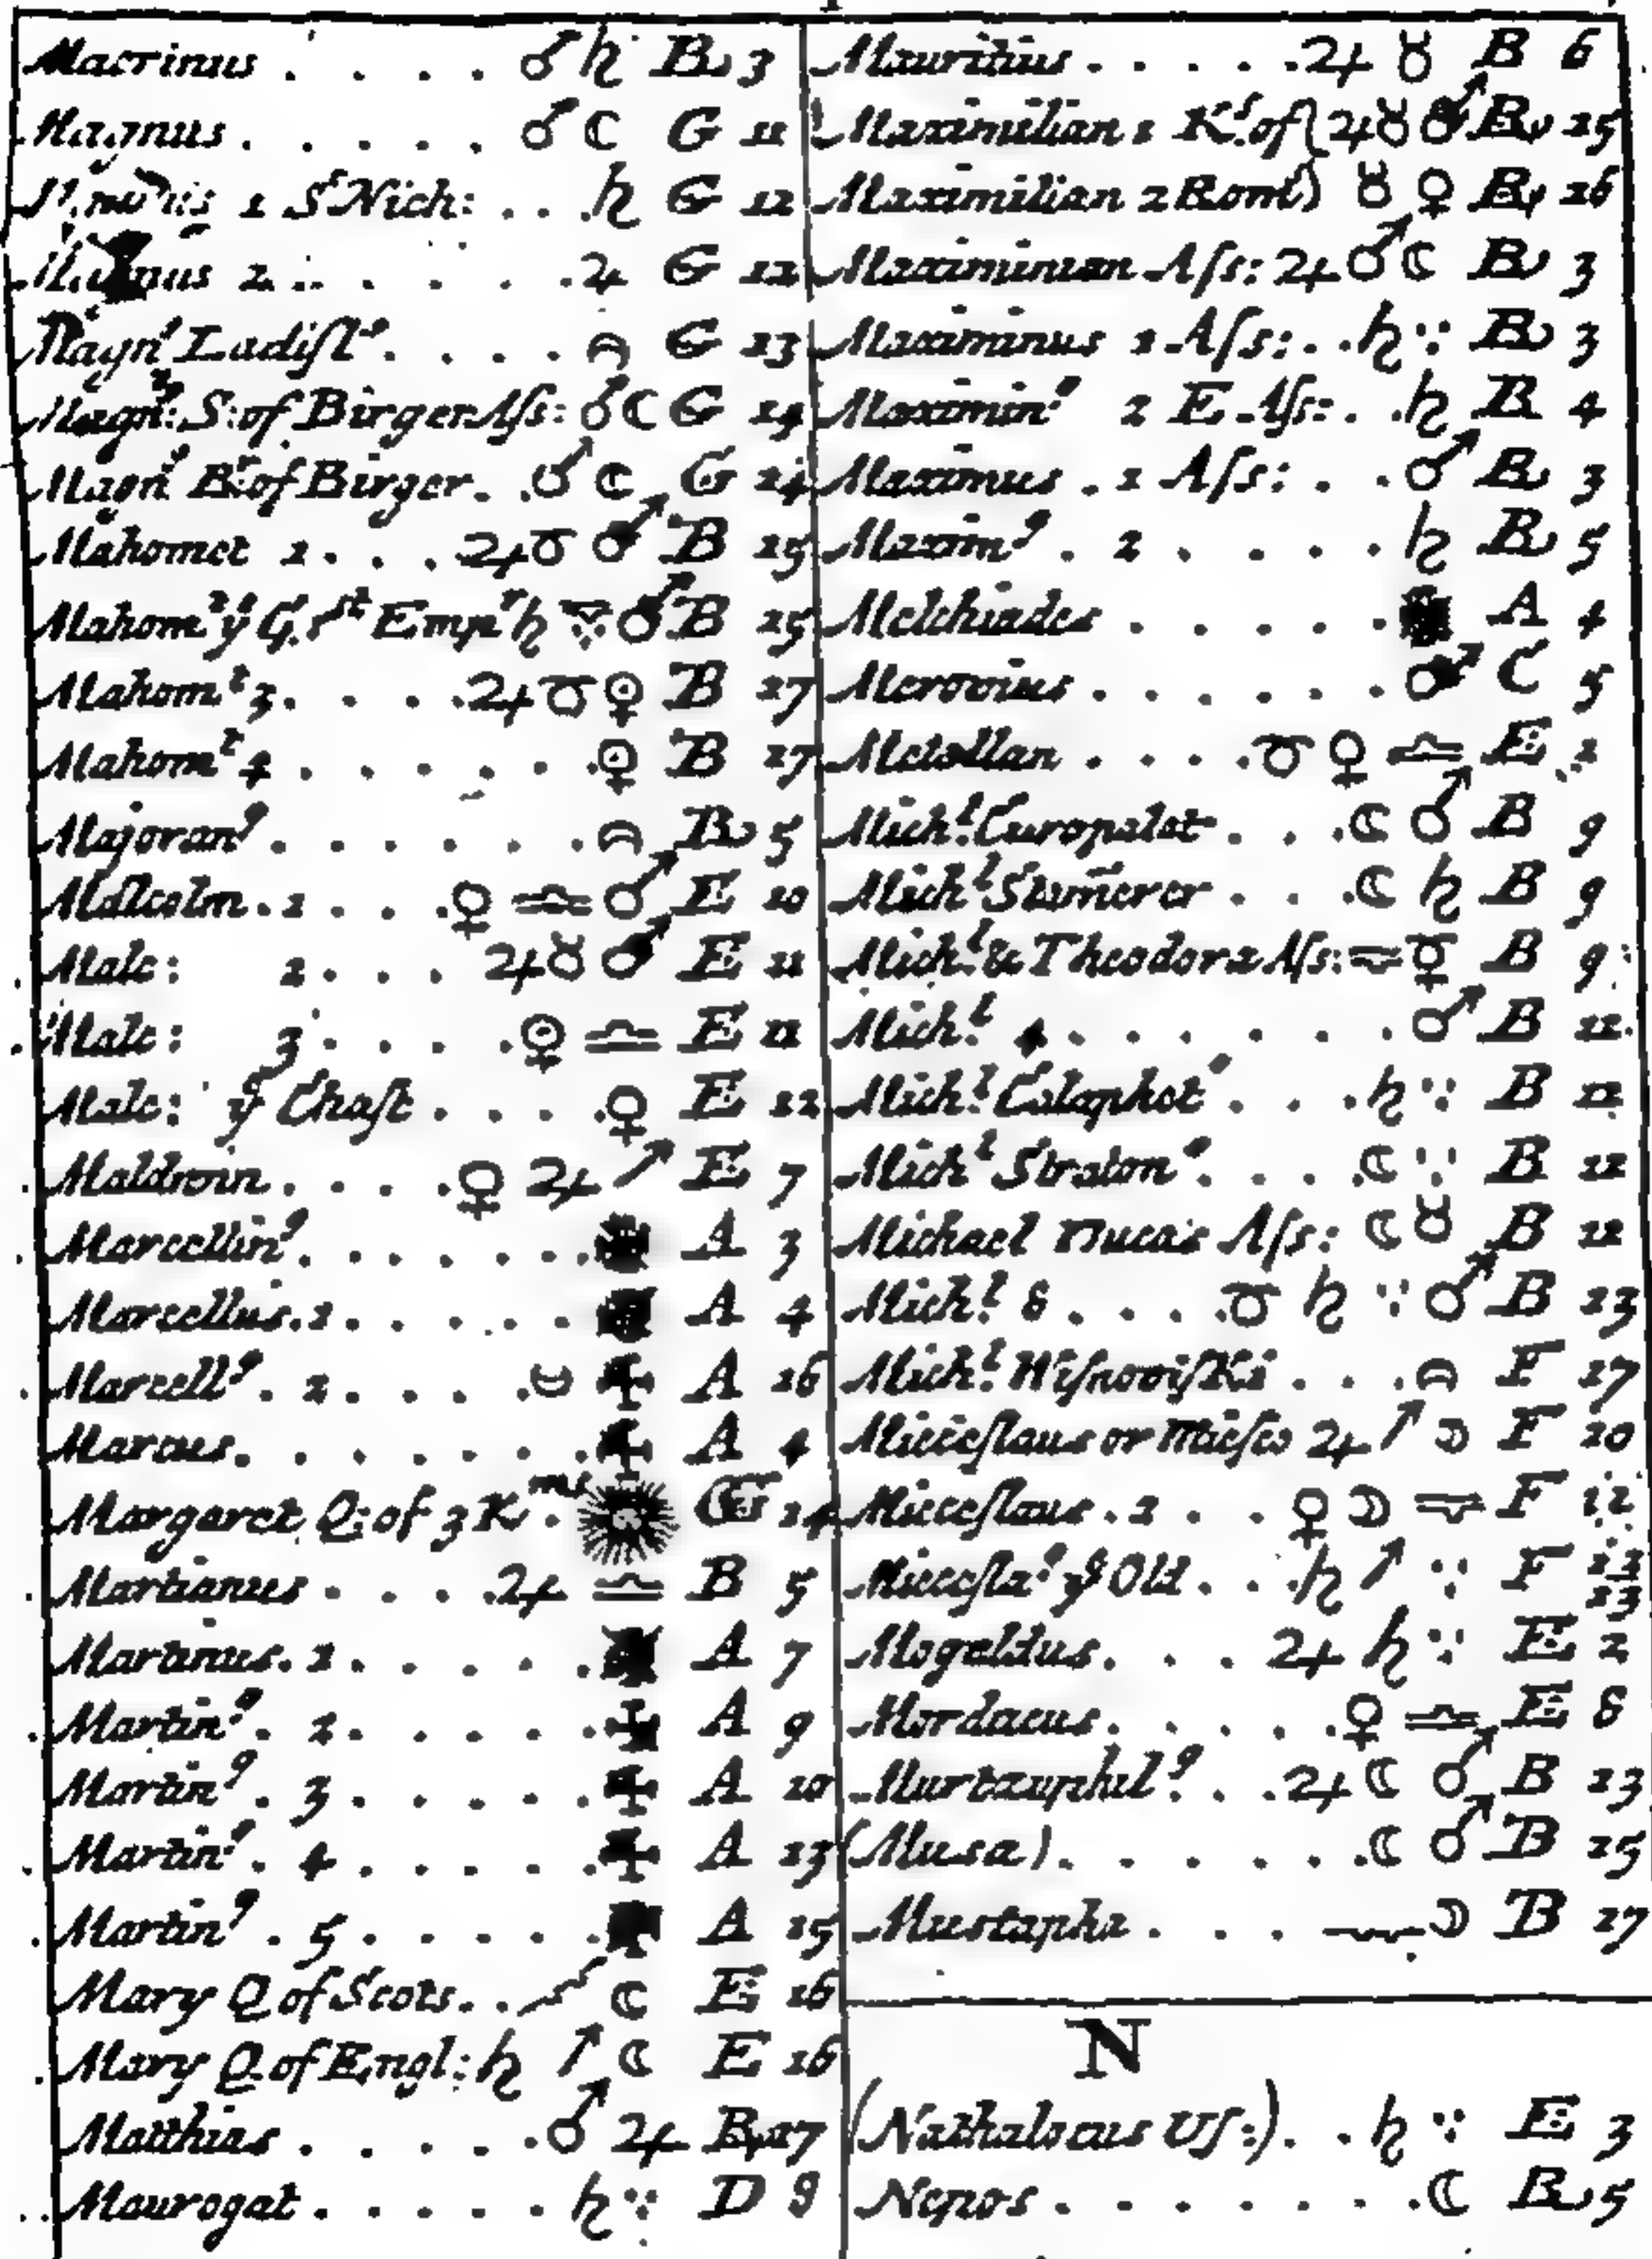 Macrinus . . . . ♂ ♄ B 3
Magnus . . . . . ♂ ☾ G 11
1 S.t Nich: . . . ♄ G 12
2 . . . . . . ♃ G 12
Magn.s Ladiſl.s . . . . G 13
Magn: S: of Birger Aſs: ♂ ☾ G 14
Magn.s B.r of Birger . . ♂ ☾ G 14
Mahomet 1 . . . ♃ ♉ ♂ B 15
Mahom.t ye G. 1st Emp.r ♄ ♂ B 15
Mahom.t 3 . . . . ♃ ♉ ☉♀ B 17
Mahom.t 4 . . . . . . ☉♀ B 17
Majoran9 . . . . . . . B 5
Malcolm . 1 . . . ♀ ♎ ♂ E 10
Malc: 2 . . . ♃ ♉ ♂ E 11
Malc: 3 . . . . ☉♀ ♎ E 11
Malc: ye Chaſt . . . . ♀ E 12
Maldwin . . . . ♀ ♃ ↗ E 7
Marcellin9 . . . . . . . A 3
Marcellus . 1 . . . . . . A 4
Marcell9 . 2 . . . . ✠ A 16
Marcus . . . . . . . ✠ A 4
Margaret Q: of 3 K.ms . G 14
Martianus . . . . ♃ ♎ B 5
Martinus . 1 . . . . . . A 7
Martin9 . 2 . . . . . . ✠ A 9
Martin9 . 3 . . . . . . ✠ A 10
Martin9 . 4 . . . . . . ✠ A 13
Martin9 . 5 . . . . . . A 15
Mary Q of Scots . . . ☾ E 16
Mary Q of Engl: ♄ ↗ ☾ E 16
Matthias . . . . . ♂ ♃ B 17
Maurogat . . . . . ♄ ∵ D 8
Mauritius . . . . . ♃ ♉ B 6
Maximilian 1 K.s of ♃ ♉ ♂ B 15
Maximilian 2 Rom ♉ ♀ B 16
Maximinian Aſs: ♃ ♂ ☾ B 3
Maximinus 1 Aſs: . . ♄ ∵ B 3
Maximin9 2 E Aſs: . . ♄ B 4
Maximus . 1 Aſs: . . ♂ B 3
Maxim9 . 2 . . . . . ♄ B 5
Melchiades . . . . . . A 4
Merovius . . . . . . . ♂ C 5
Metellan . . . . ♉ ♀ ♎ E 1
Mich.l Curopalat . . . ☾ ♂ B 9
Mich.l . . . ☾ ♄ B 9
Mich.l & Theodora Aſs: B 9
Mich.l 4 . . . . . . . ♂ B 11
Mich.l Calaphot . . . ♄ ∵ B 11
Mich.l Straton . . . . ☾ ∵ B 11
Michael Aſs: ☾ ♉ B 11
Mich.l 8 . . . . ♉ ♄ ∵ ♂ B 13
Mich.l Wiſnowiſki . . . F 17
Micceſlaus or Mieſco ♃ ↗ ☽ F 10
Micceſlaus . 2 . . . ♀ ☽ F 12
Micceſla9 ye Old . . . ♄ ↗ ∵ F 13 13
Mogaldus . . . . ♃ ♄ ∵ E 2
Mordacus . . . . . ♀ ♎ E 8
Murtzuphil9 . . . ♃ ☾ ♂ B 13
(Musa) . . . . . . . ☾ ♂ B 15
Mustapha . . . . ☽ B 17
N
(Nathalocus Uſ:) . . ♄ ∵ E 3
Nepos . . . . . . . . ☾ B 5